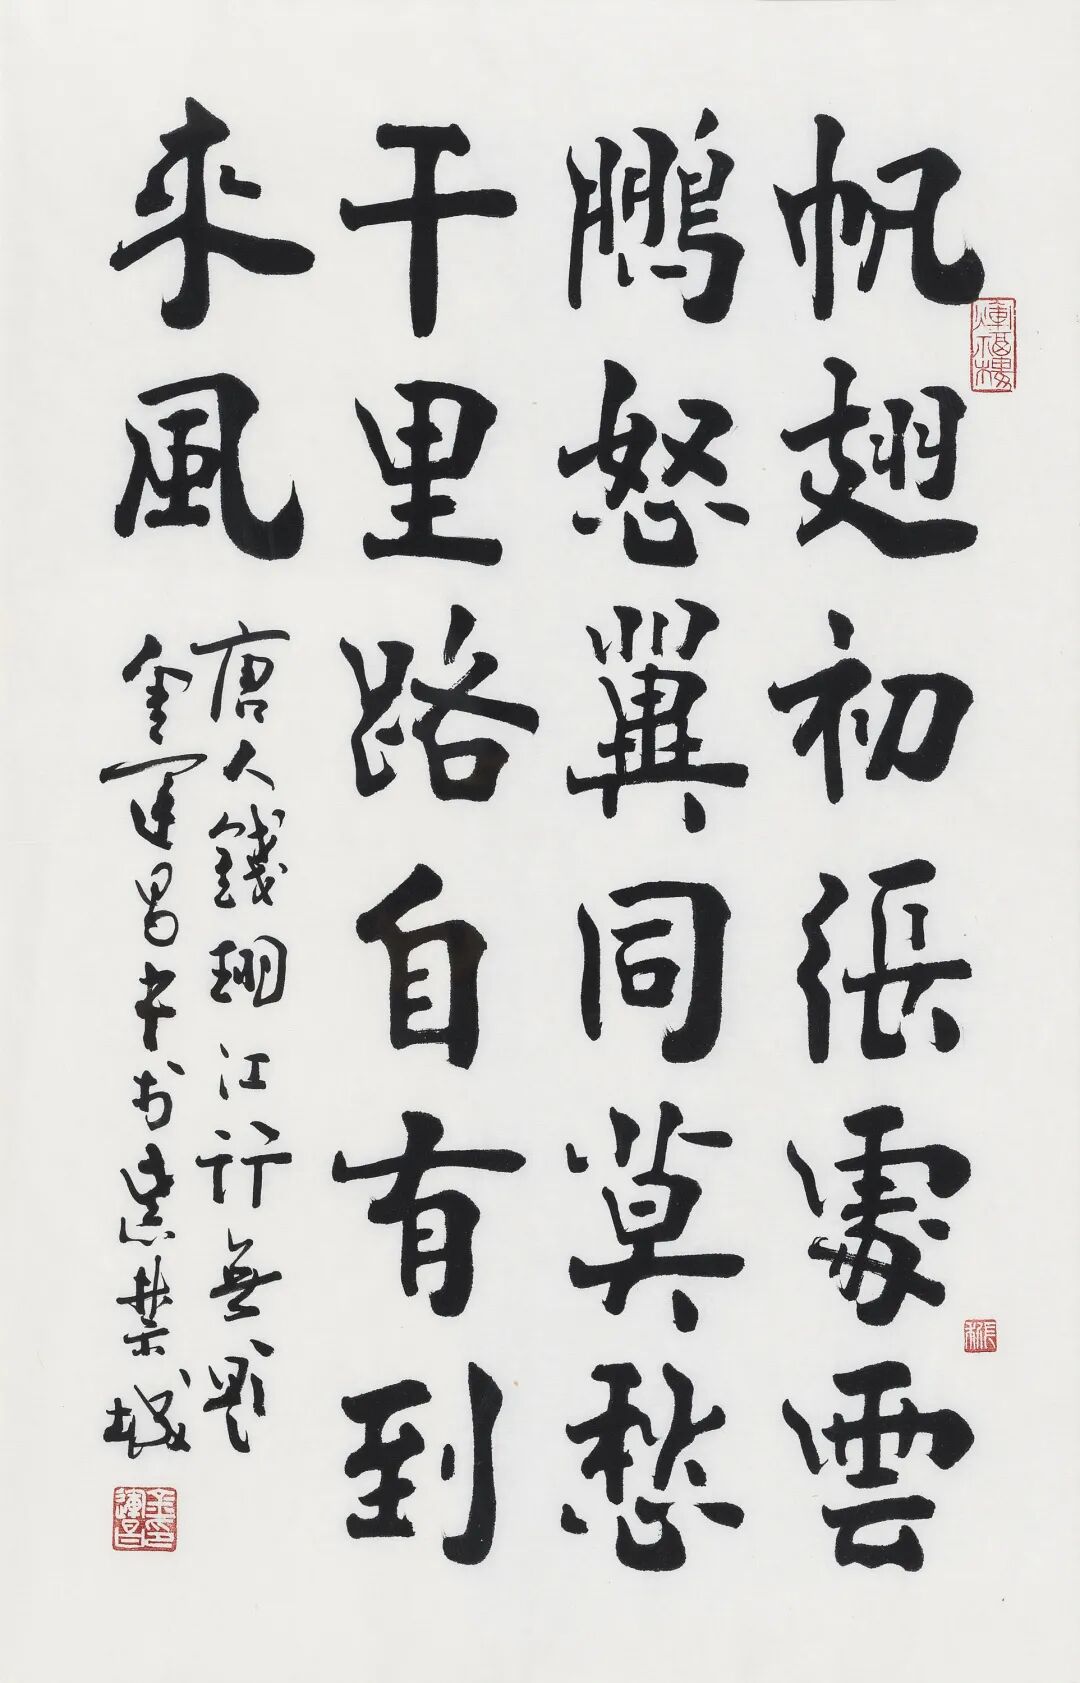 帆翅初張處雲
鵬怒翼同莫愁
千里路自有到
來風
唐人錢珝江行無題
金運昌書於紫禁城
金印
運昌